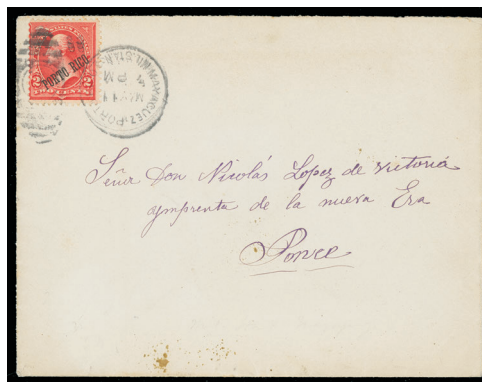 PORTO RICO
2 2
TWO CENTS
MAYAGUEZ, PORTO
MAY 11
Señor Don Nicolás Lopez de Victoria
ymprenta de la nueva Era
Ponce